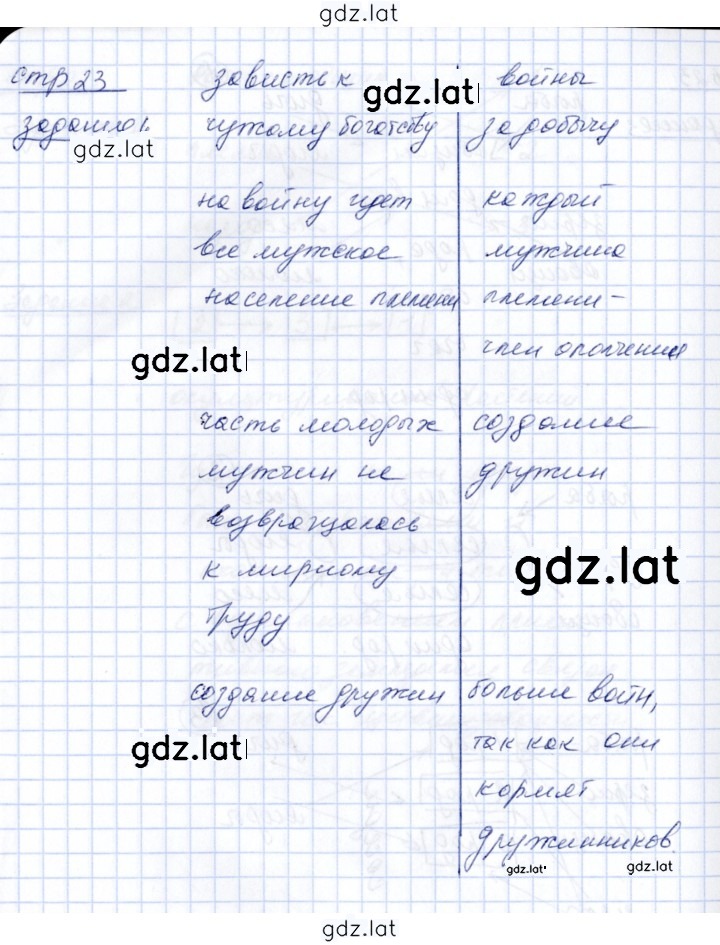 gdz.lat
стр 23 зависть к войны
gdz.lat
задание 1. чужому богатству за добычу
gdz.lat
на войну идет каждый
все мужское мужчина
население племени племени -
член ополчения
gdz.lat
часть молодых создание
мужчин не дружин
возвращалась
gdz.lat
к мирному
труду
создание дружин больше войн,
gdz.lat
так как они
кормят
дружинников.
gdz.lat gdz.lat
gdz.lat